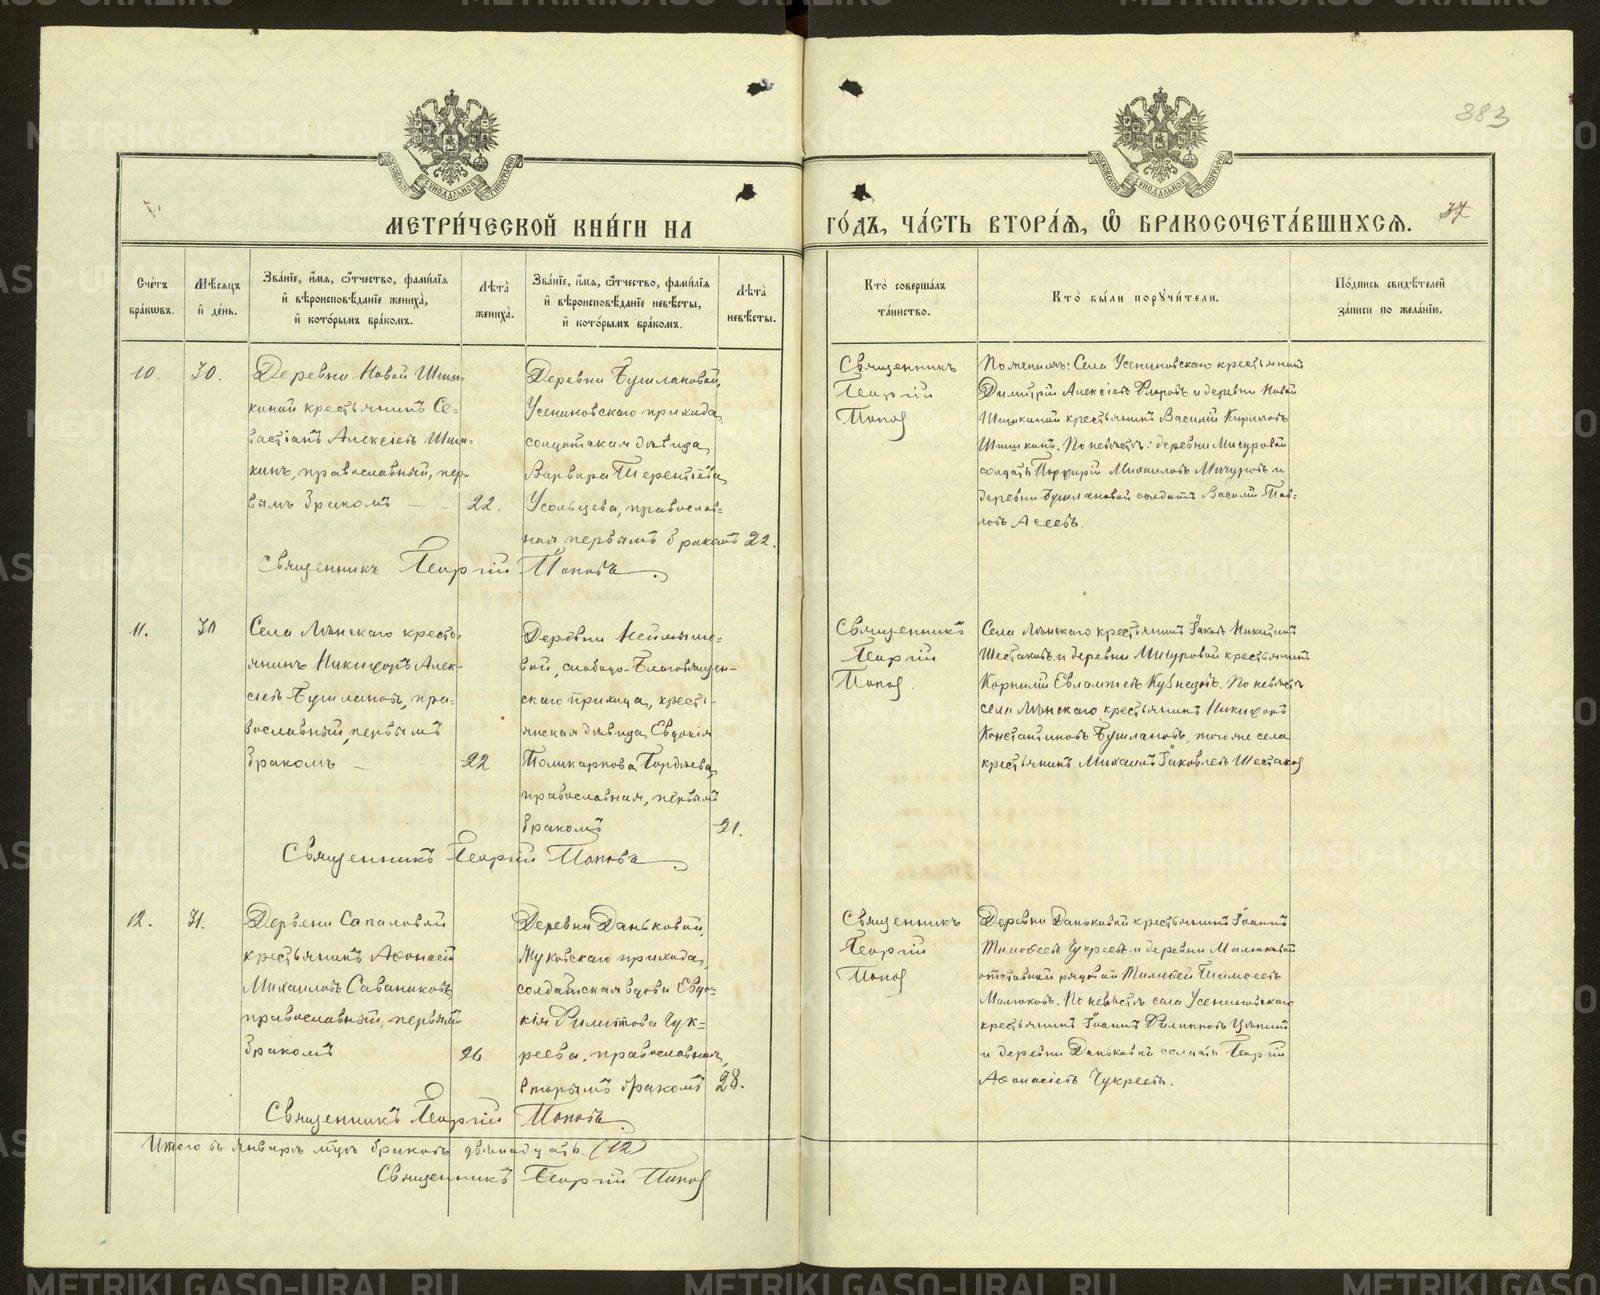 383
МЕТРИ́ЧЕСКОЙ КНИ́ГИ НА
ГО́ДЪ, ЧА́СТЬ ВТОРА́Я, Ѽ БРАКОСОЧЕТА́ВШИХСЯ.
37
Сче́тъ бра́кѡвъ.
Мѣ́сяцъ и҆ де́нь.
Зва́нїе, и҆́мя, ѻ҆́тчество, фами́лїя и҆ вѣроисповѣ́данїе жениха̀, и҆ кото́рымъ бра́комъ.
Лѣ́та̀ жениха̀.
Зва́нїе, и҆́мя, ѻ҆́тчество, фами́лїя и҆ вѣроисповѣ́данїе невѣ́сты, и҆ кото́рымъ бра́комъ.
Лѣ́та̀ невѣ́сты.
Кто̀ соверша́лъ та́инство.
Кто̀ бы́ли порꙋчи́тели.
По́дпись свидѣ́телей за́писи по жела́нїю.
10.
30.
Деревни Новой Шиш-
киной крестьянинъ Се-
вастіанъ Алексіевъ Шиш-
кинъ, православный, пер-
вымъ бракомъ
22.
Деревни Бушлановой,
Усениновскаго прихода,
солдатская дѣвица
Варвара Терентіева
Усольцева, православ-
ная первымъ бракомъ
22.
Священникъ Георгій Поповъ
Священникъ
Георгій
Попов
По женихѣ: Села Усениновскаго крестьянинъ
Димитрій Алексіевъ и деревни Новой
Шишкиной крестьянинъ Василій Кириловъ
Шишкинъ. По невѣстѣ: деревни Мичуровой
солдатъ Порфирій Михаиловъ Мичуровъ и
деревни Бушлановой солдатъ Василій Пав-
ловъ Асеевъ.
11.
30
Села Лѣнскаго кресть-
янинъ Никифоръ Алек-
сіевъ Бушлановъ, пра-
вославный, первымъ
бракомъ
22
Деревни Неймыше-
вой, слободо-Благовѣщен-
скаго прихода, кресть-
янская дѣвица Евдокія
Поликарпова Гордѣева,
православная, первымъ
бракомъ
21.
Священникъ Георгій Поповъ
Священникъ
Георгій
Попов
Села Лѣнскаго крестьянинъ Іаковъ Никитинъ
Шестаковъ и деревни Мичуровой крестьянинъ
Корнилій Евлампіевъ Кузнецовъ. По невѣстѣ
села Лѣнскаго крестьянинъ Никифоръ
Константиновъ Бушлановъ, того же села
крестьянинъ Михаилъ Іаковлевъ Шестаков
12.
31.
Дервени Сапаловой
крестьянинъ Афонасій
Михаиловъ Саваниковъ,
православный, первымъ
бракомъ
26
Деревни Даньковой,
Жуковскаго прихода,
солдатская вдова Евдо-
кія Филитова Чук-
реева, православная,
вторымъ бракомъ
28.
Священникъ Георгій Поповъ
Священникъ
Георгій
Попов
Деревни Даньковой крестьянинъ Іоаннъ
Тимофеевъ Чукреевъ и деревни Малюковой
отставной рядовой Тимофей Тимофеевъ
Малюковъ. По невѣстѣ села Усениновскаго
крестьянинъ Іоаннъ Филипповъ
и деревни Даньковой солдатъ Георгій
Афонасіевъ Чукреевъ.
Итого въ январѣ м҃цѣ браковъ двѣнадцать (12)
Священникъ Георгій Попов